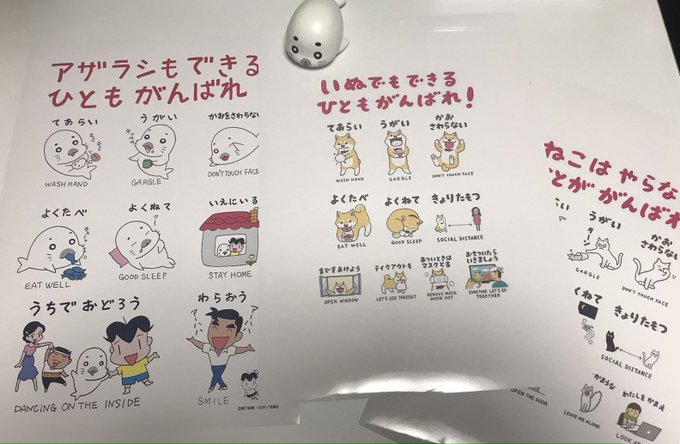 アザラシもできる
ひともがんばれ
てあらい
うがい
かおをさわらない
WASH HAND
GARGLE
DON'T TOUCH FACE
よくたべ
よくねて
いえにいる
EAT WELL
GOOD SLEEP
STAY HOME
うちでおどろう
わらおう
アハハハ
DANCING ON THE INSIDE
SMILE
いぬでもできる
ひともがんばれ!
てあらい
うがい
かお
さわらない
WASH HAND
GARGLE
DON'T TOUCH FACE
よくたべ
よくねて
きょりたもつ
EAT WELL
GOOD SLEEP
SOCIAL DISTANCE
まどをあけよう
テイクアウトも
あついときは
マスクとる
おちついたら
いきましょう
OPEN WINDOW
LET'S USE TAKEOUT
REMOVE MASK
WHEN HOT
SOMETIME LET'S GO
TOGETHER
ねこはやらな
とががんばれ
うがい
かお
さわらない
GARGLE
DON'T TOUCH FACE
くねて
きょりたもつ
SOCIAL DISTANCE
かまうな
わたしをかまえ
OPEN THE DOOR
LEAVE ME ALONE
LOOK AT